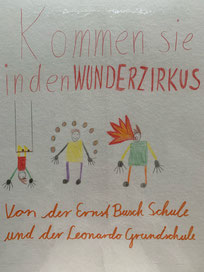 Kommen sie
in den WUNDERZIRKUS
Von der Ernst Busch Schule
und der Leonardo Grundschule